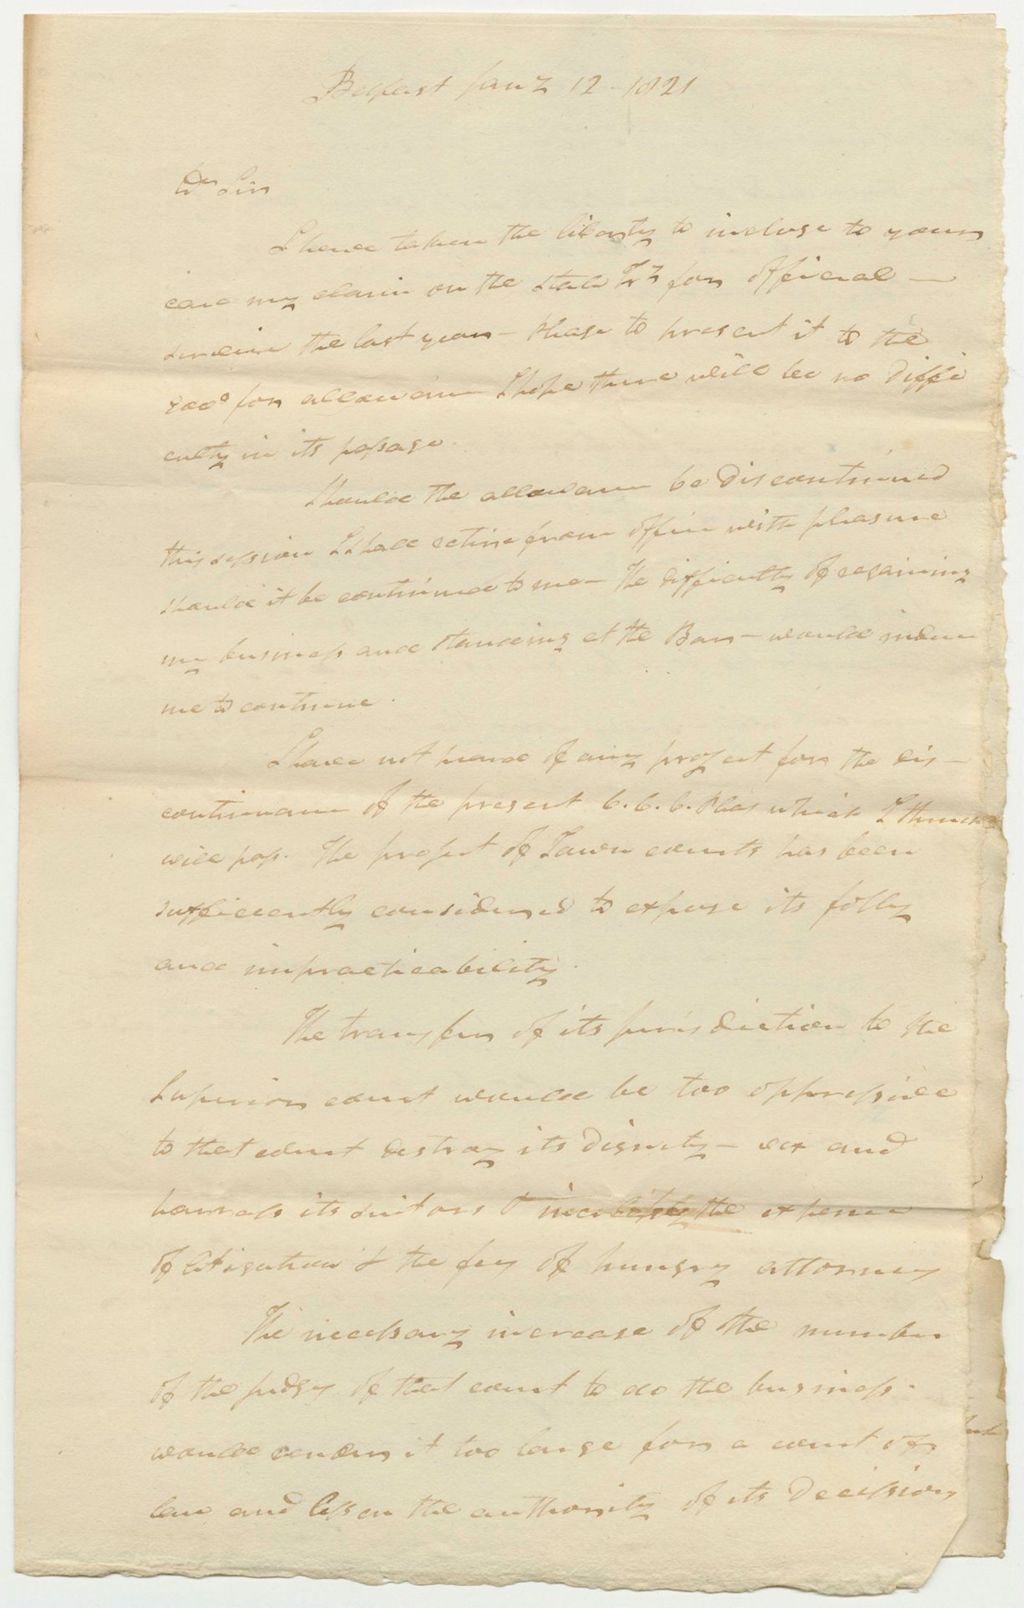 Belfast Jany 12 - 1821
Dr Sir
I have taken the liberty to inclose to your
care my claim on the State Try for official —
services the last year — Please to present it to the
for allowance I hope there will be no diffi
culty in its passage.
Should the allowance be discontinued
this session I shall retire from office with pleasure
should it be continued to me — The difficulty of regaining
my business and standing at the Bar — would induce
me to continue.
I have not heard of any project for the dis —
continuance of the present C. C. C. Pleas which I think
will pass. The project of Town courts has been
sufficiently considered to expose its folly
and impracticability.
The transfer of its jurisdiction to the
Superior court would be too oppressive
to that court destroy its dignity — vex and
harrass its suitors & the expence
of litigation & the fees of hungry attorneys
The necessary increase of the number
of the judges of that court to do the business.
would render it too large for a court of
law and lessen the authority of its decissions